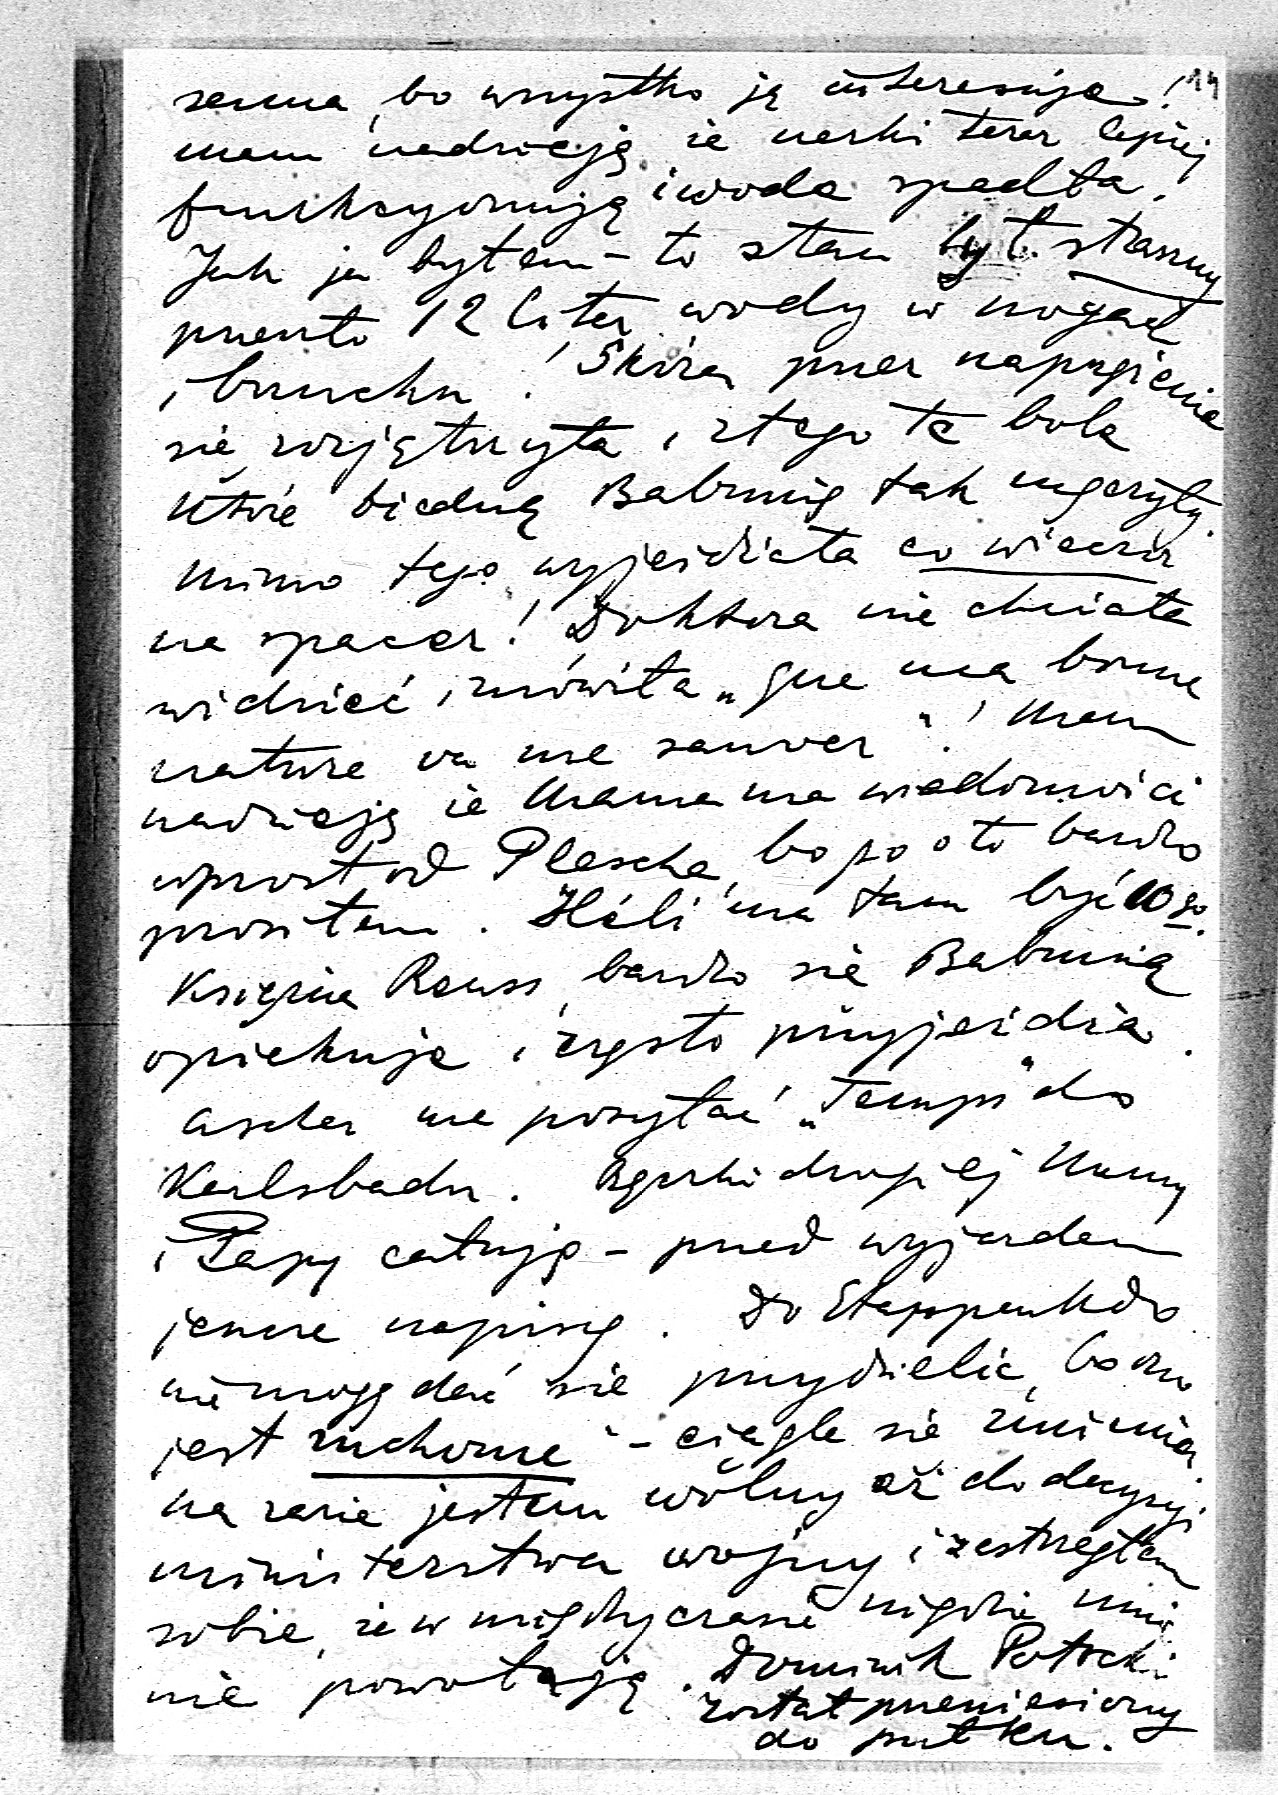 14
senna, bo wszystko ją interesuje!
mam nadzieję że nerki teraz lepiej
funkcyonują i woda spadła.
Jak ja byłem – to stan był straszny
przeszło 12 liter wody w nogach
i brzuchu! Skóra przez napięcie
się rozjątrzyła, i z tego te bole
które biedną Babunię tak męczyły.
Mimo tego wyjeżdżała co wieczór
na spacer! Doktora nie chciała
widzieć, mówiła „que ma bonne
nature va me sauver"! Mam
nadzieję że Mama ma wiadomości
wprost od Plescha, bo go o to bardzo
prosiłem. Héli ma tam być 10go.
Księżna Reuss bardzo się Babunią
opiekuje i często przyjeżdża.
Ascher ma posyłać „Temps" do
Karlsbadu. Rączki drogiej Mamy
i Papy całuję – przed wyjazdem
jeszcze napiszę. Do Etappenkdo
nie mogę dać się przydzielić, bo ono
jest ruchome – ciągle się zmienia.
Na razie jestem wolny aż do decyzyi
ministerstwa wojny i zastrzegłem
sobie, że w międzyczasie nigdzie mnie
nie powołają. Dominik Potocki
został przeniesiony
do pułku.